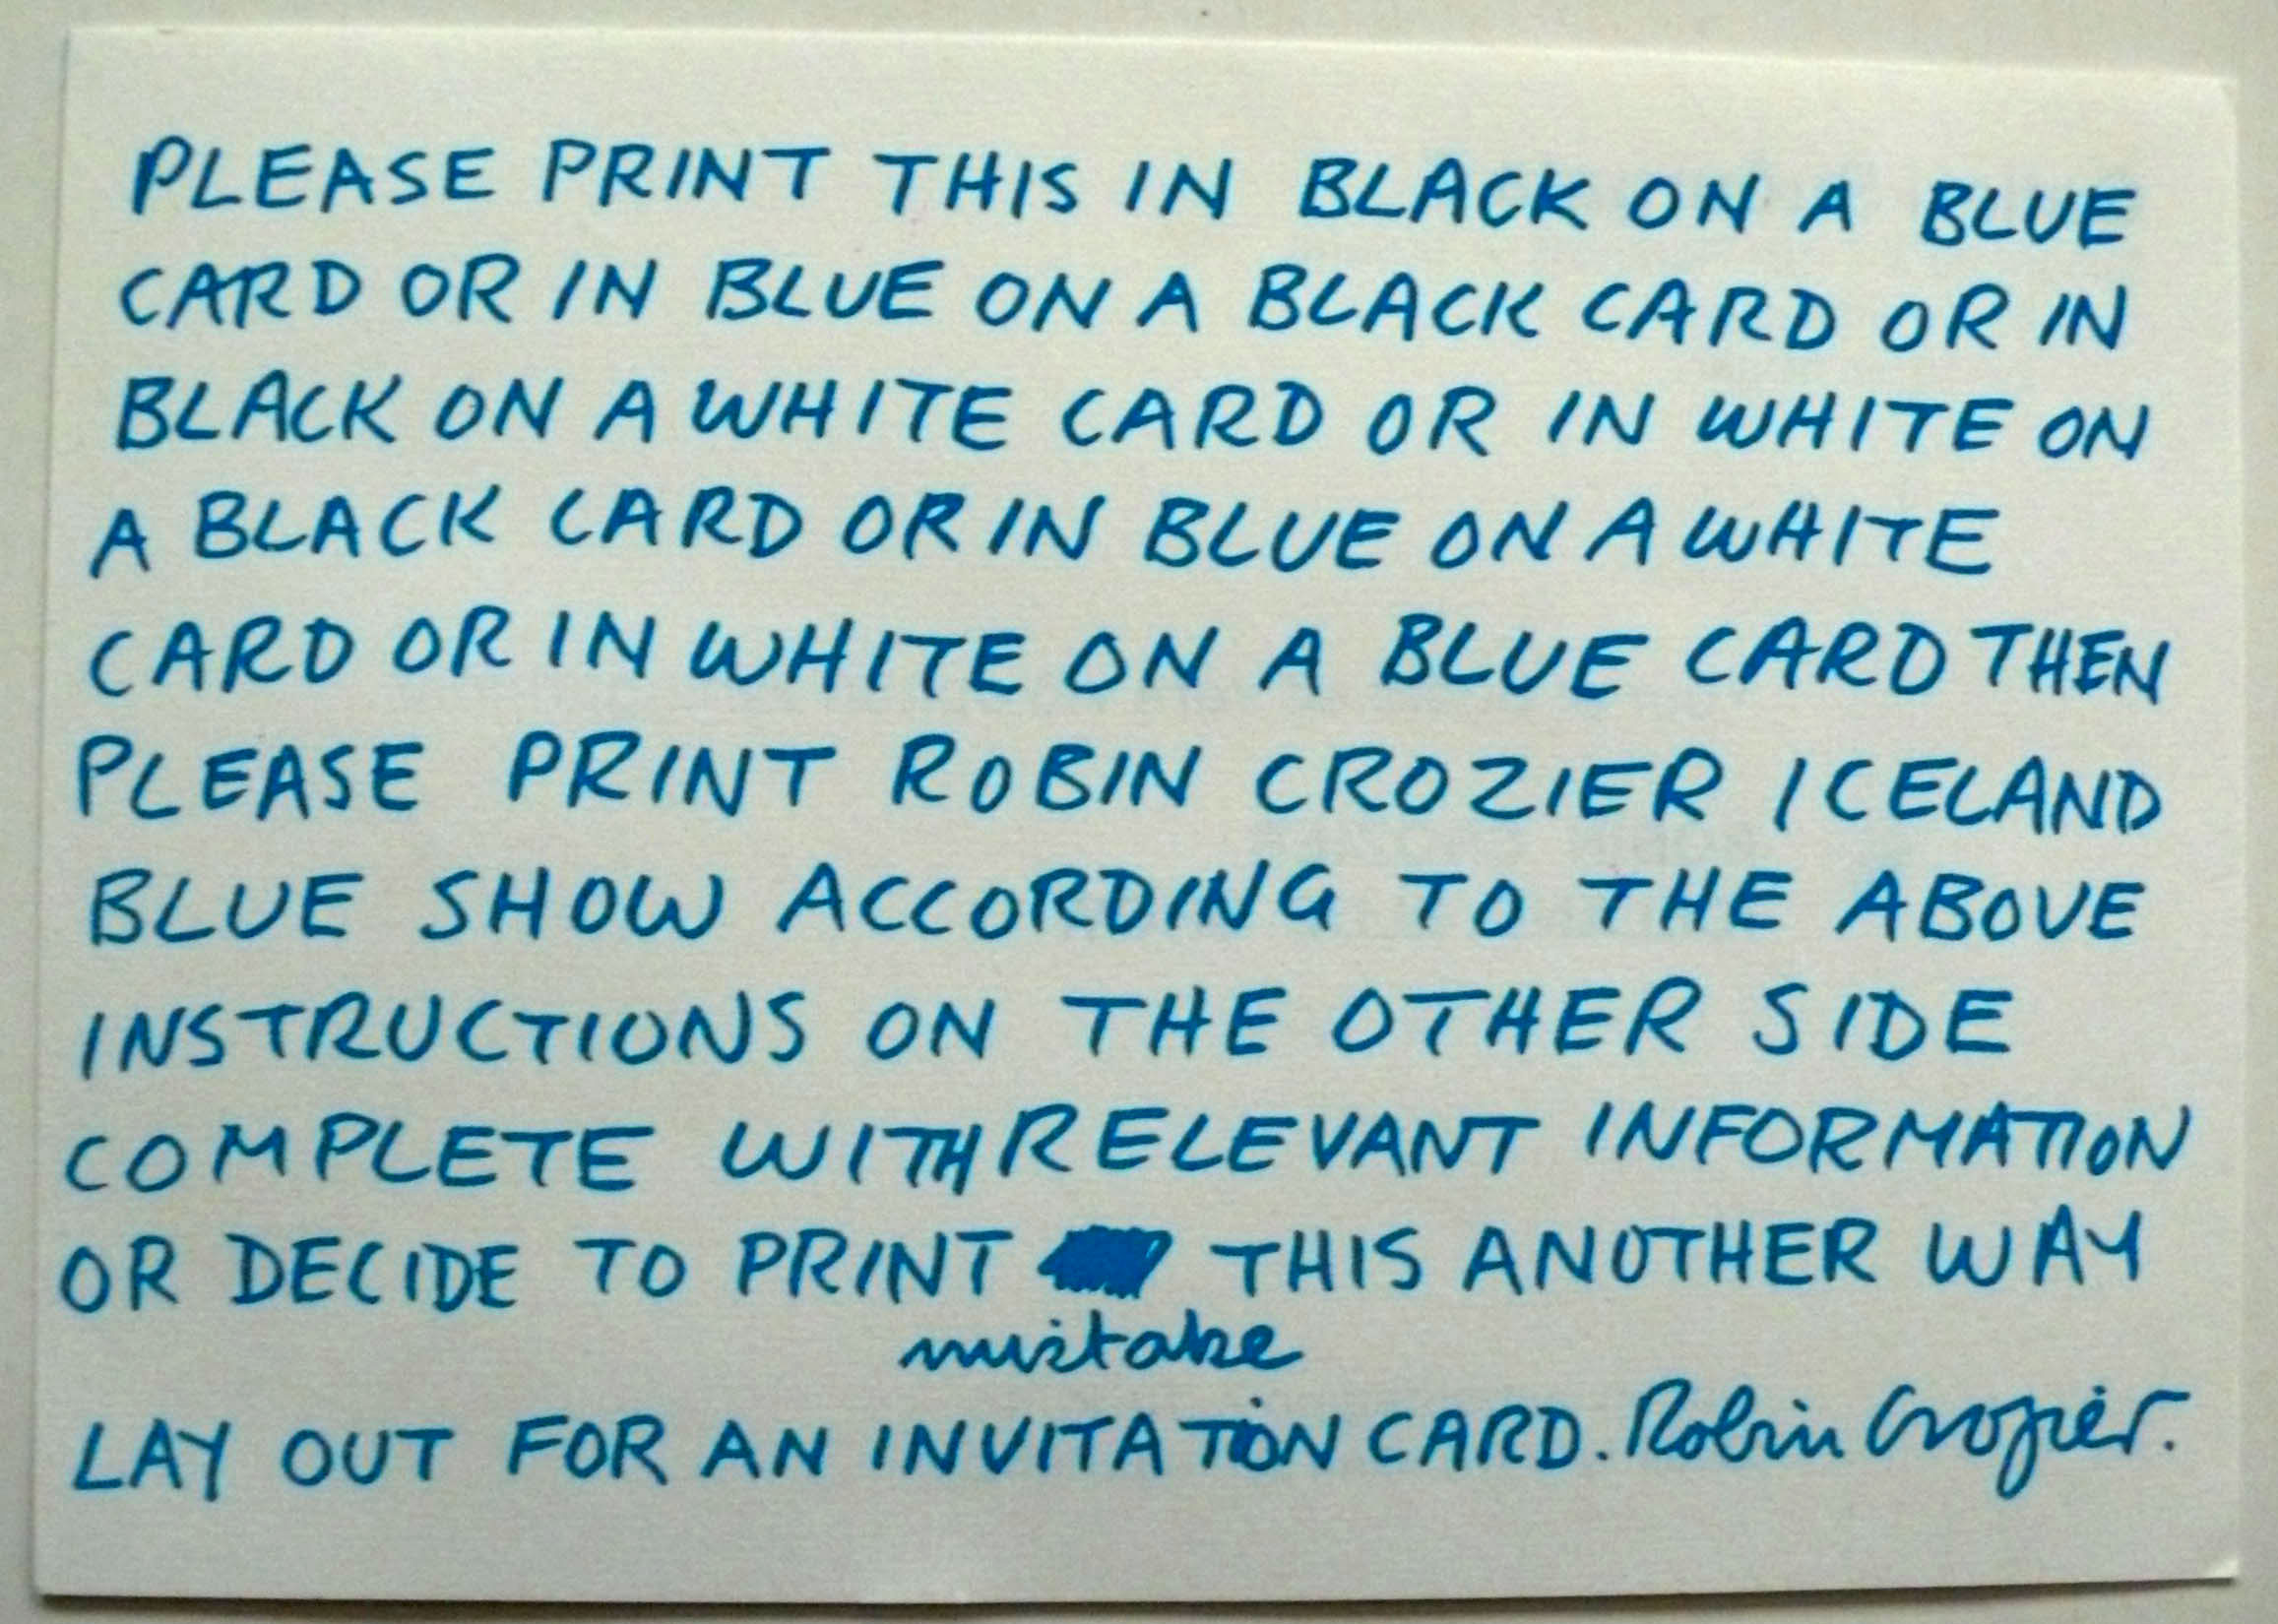 PLEASE PRINT THIS IN BLACK ON A BLUE
CARD OR IN BLUE ON A BLACK CARD OR IN
BLACK ON A WHITE CARD OR IN WHITE ON
A BLACK CARD OR IN BLUE ON A WHITE
CARD OR IN WHITE ON A BLUE CARD THEN
PLEASE PRINT ROBIN CROZIER ICELAND
BLUE SHOW ACCORDING TO THE ABOVE
INSTRUCTIONS ON THE OTHER SIDE
COMPLETE WITH RELEVANT INFORMATION
OR DECIDE TO PRINT THIS ANOTHER WAY
mistake
LAY OUT FOR AN INVITATION CARD. Robin Crozier.